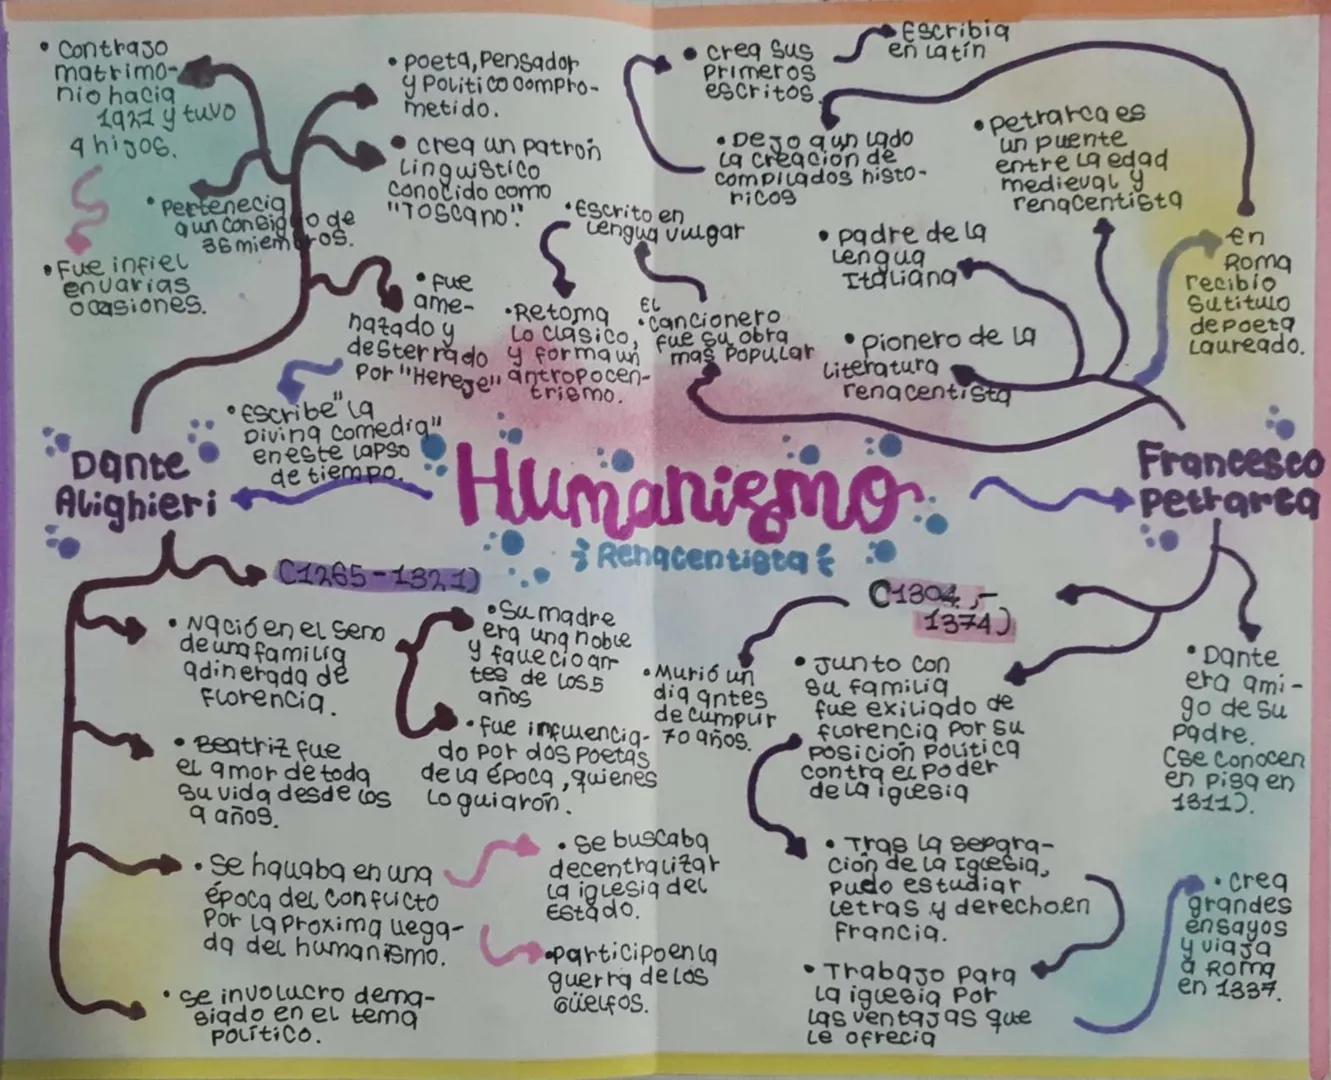 • Contrajo
matrimo-
nio hacia
1921 y tuvo
4 hijos.
• Pertenecia
a un consiglio de
36 miembros.
• Fue infiel
en varias
ocasiones.
• poeta, Pensador
y Politico compro-
metido.
• crea un patron
Linguistico
conocido como
"Toscano".
• fue
ame-
nazado y
desterrado
por "Hereje"
• escribe "la
Divina comedia"
en este lapso
de tiempo.
• Escrito en
Lengua vulgar
• Retoma
Lo clásico,
y forma un
antropocen-
trismo.
El
• Cancionero
fue su obra
mas Popular
• crea sus
primeros
escritos.
Escribia
en Latín
• Dejo a un lado
la creación de
compilados histo-
ricos
• Petrarca es
un puente
entre la edad
medieval y
renacentista
• padre de la
Lengua
Italiana
• pionero de la
literatura
renacentista
en
Roma
recibio
su titulo
de poeta
Laureado.
Dante
Alighieri
Humanismo
Renacentista
Francesco
Petrarca
(1265-1321)
• Nació en el seno
de una familia
adinerada de
Florencia.
• Beatriz fue
el amor de toda
su vida desde los
9 años.
• se hallaba en una
época del conflicto
por la proxima llega-
da del humanismo.
• se involucro dema-
siado en el tema
político.
• Su madre
era una noble
y fallecio an-
tes de los 5
años
• fue influencia-
do por dos poetas
de la época, quienes
lo guiaron.
• se buscaba
decentralizar
la iglesia del
Estado.
• participo en la
guerra de los
Güelfos.
(1304 -
1374)
• Murió un
dia antes
de cumplir
70 años.
• Junto con
su familia
fue exiliado de
florencia por su
posición política
contra el poder
de la iglesia
• Tras la separa-
ción de la Iglesia,
pudo estudiar
letras y derecho en
Francia.
• Trabajo para
la iglesia por
las ventajas que
le ofrecia
• Dante
era ami-
go de su
padre.
(se conocen
en Pisa en
1311).
• crea
grandes
ensayos
y viaja
a Roma
en 1337.